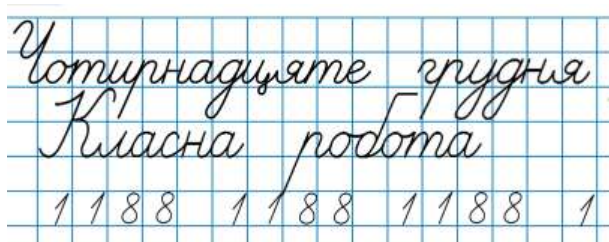 Чотирнадцяте грудня
Класна робота
1 1 8 8 1 1 8 8 1 1 8 8 1